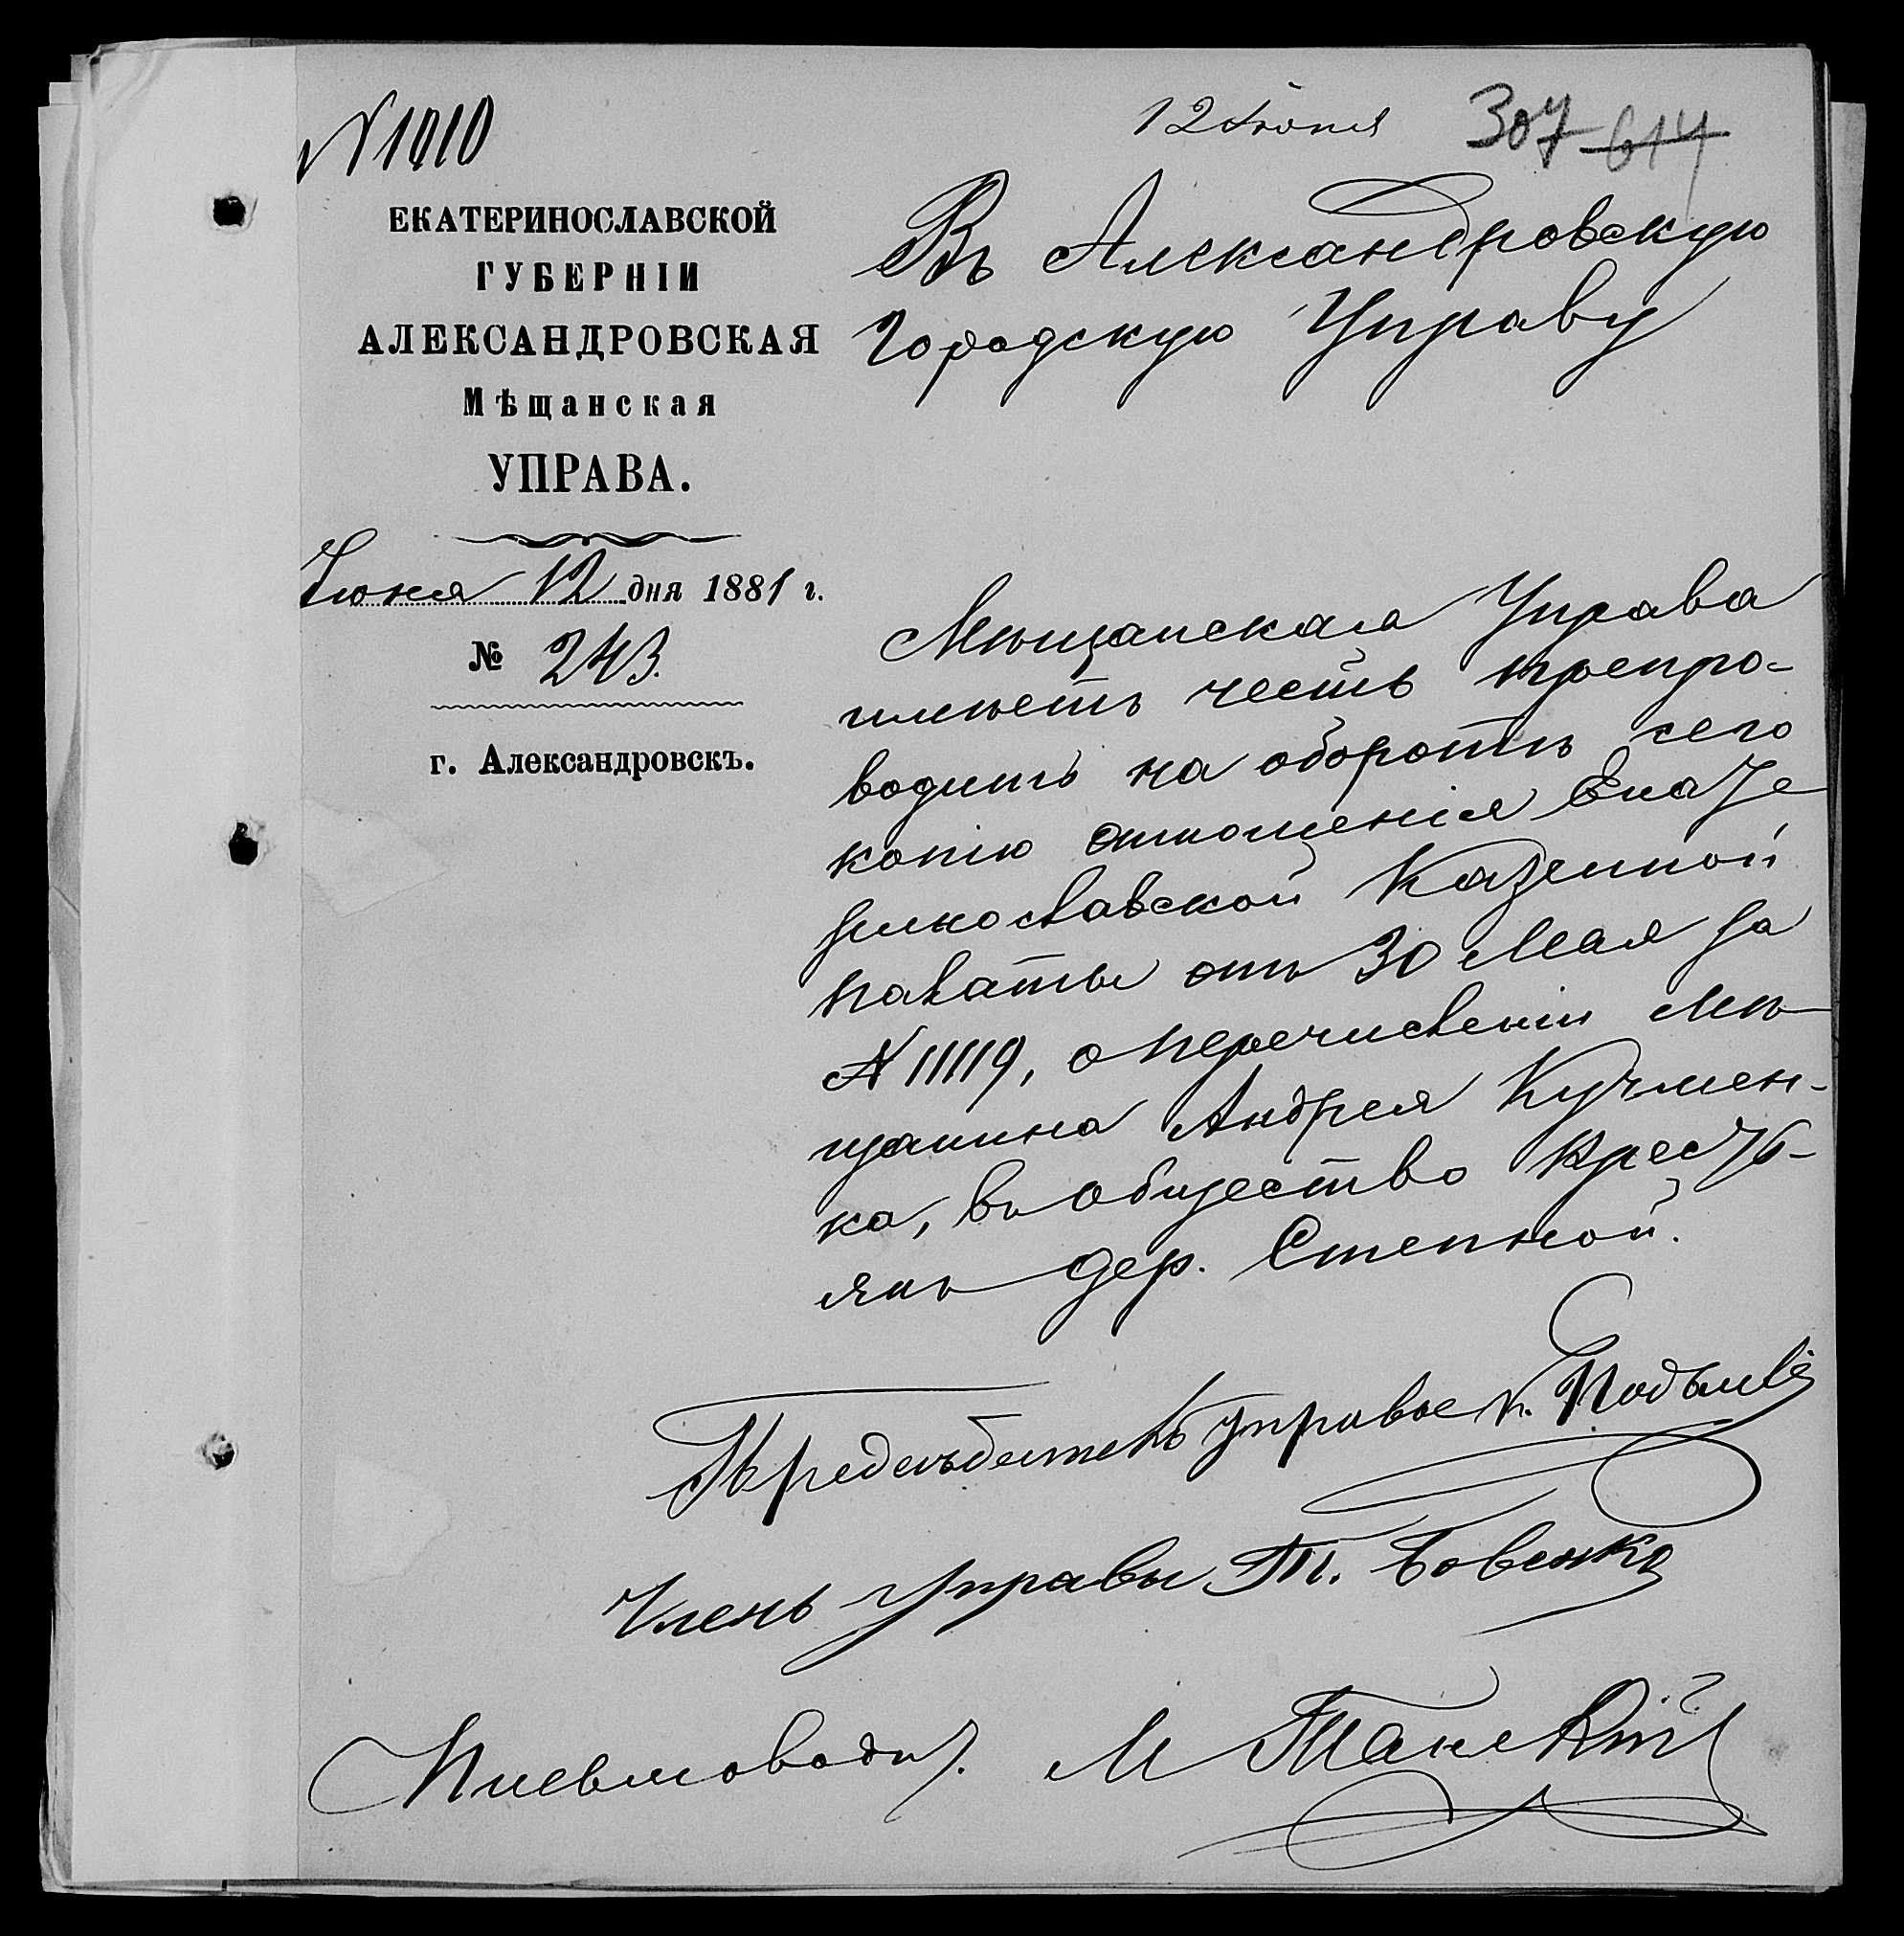 № 1010
12 Июня 307 614
ЕКАТЕРИНОСЛАВСКОЙ
ГУБЕРНІИ
АЛЕКСАНДРОВСКАЯ
Мѣщанская
УПРАВА.
Іюня 12 дня 1881 г.
№ 243.
г. Александровскъ.
Въ Александровскую
Городскую Управу
Мѣщанская Управа
имѣетъ честь препро-
водить на оборотѣ сего
копію отношенія Екате
ринославской Казенной
Палаты отъ 30 Мая за
№ 11119, о перечисленіи мѣ-
щанина Андрея Кучмен-
ка, въ общество крестья-
янъ дер. Степной.
Предсѣдатель Управы К.
Членъ Управы Т. Бовенко
Писмоводит. М